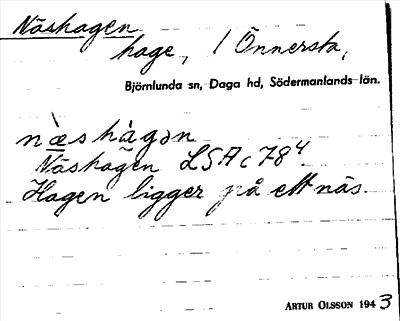 Näshagen
hage, / Önnersta,
Björnlunda sn, Daga hd, Södermanlands län.
næshàgən
Näshagen LSA c 78⁴.
Hagen ligger på ett näs.
ARTUR OLSSON 1943